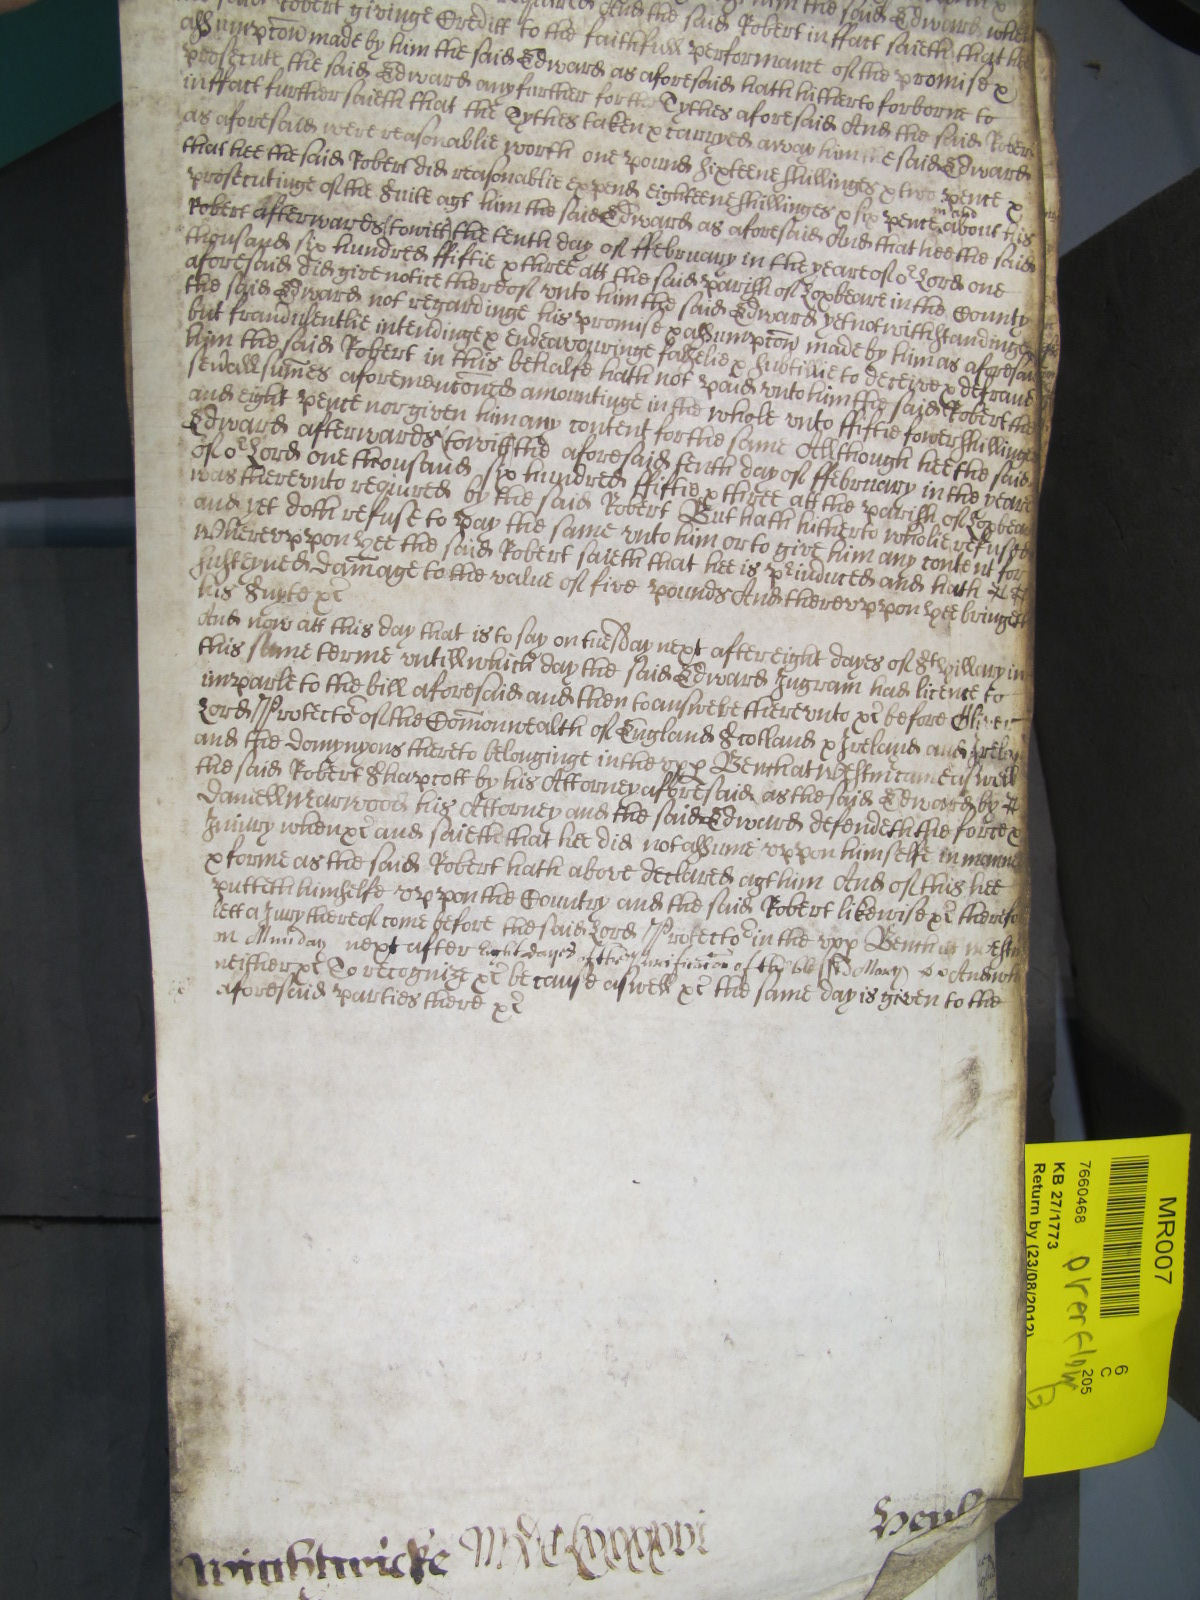 the said Robert givinge Creditt to the faithfull performance of the promise x
assumpcon made by him the said Edward as aforesaid hath hitherto forborne to
prosecute the said Edward any further for the Tythes aforesaid And the said Robert
in ffact further saieth that the Tythes taken x carryed away him the said Edward
as aforesaid were reasonablie worth one pound sixteene shillinges x two pence x
that hee the said Robert did reasonablie expend eighteene shillinges x six pence in and about his
prosecutinge of the Suite agt him the said Edward as aforesaid And that hee the said
Robert afterwards (towitt) the tenth day of ffebruary in the yeare of or Lord one
thousand six hundred ffiftie x three att the said parish of Loxbeare in the County
aforesaid did give notice thereof unto him the said Edward yet notwithstandinge
the said Edward not regardinge his promise x assumpcon made by him as aforesaid
but fraudulentlie intendinge x endeavouringe falselie x subtillie to deceive x defraud
him the said Robert in this behalfe hath not paid unto him the said Robert the
sevall sumes aforemenconed amountinge in the whole unto ffiftie fower shillinges
and eight pence nor given him any content for the same Allthough hee the said
Edward afterwards (towitt) the aforesaid tenth day of ffebruary in the yeare
of or Lord one thousand six hundred ffiftie x three att the parish of Loxbeare
was thereunto required by the said Robert But hath hitherto wholie refused
and yet doth refuse to pay the same unto him or to give him any content for
Whereuppon hee the said Robert saieth that hee is preiudiced and hath
susteyned damage to the value of five pounds And thereuppon hee bringeth
his Suyte xc
And now att this day that is to say on tuesday next after eight dayes of St Hillary in
this same terme untill which day the said Edward Ingram had licence to
imparle to the bill aforesaid and then to answere thereunto xc before Oliver
Lord Protector of the Comonwealth of England Scotland x Ireland and
and the domynyons thereto belonginge in the upp Bench at Westm came aswell
the said Robert Sharpcott by his Attorney afforesaid as the said Edward by
Daniell Marwood his Attorney and the said Edward defendeth the force x
Iniury when xc and saieth that hee did not assume uppon himselfe in manner
x forme as the said Robert hath above declared agt him And of this hee
putteth himselfe uppon the Country and the said Robert likewise xc therefore
lett a Jury thereof come before the said Lord Protector in the upp Bench att Westm
on Munday next after eight dayes of the purification of the blessed Mary And who
neither xc To recognize xc because aswell xc the same day is given to the
aforesaid parties there xc
Wightwicke
MR007
7660468
KB 27/1773
Return by (23/08/2012)
overflow
205
6
C